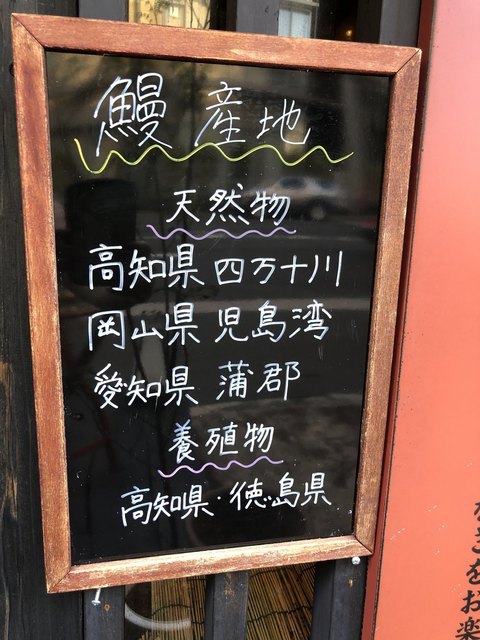 鰻 産地
天然物
高知県 四万十川
岡山県 児島湾
愛知県 蒲郡
養殖物
高知県・徳島県
なぎをお楽